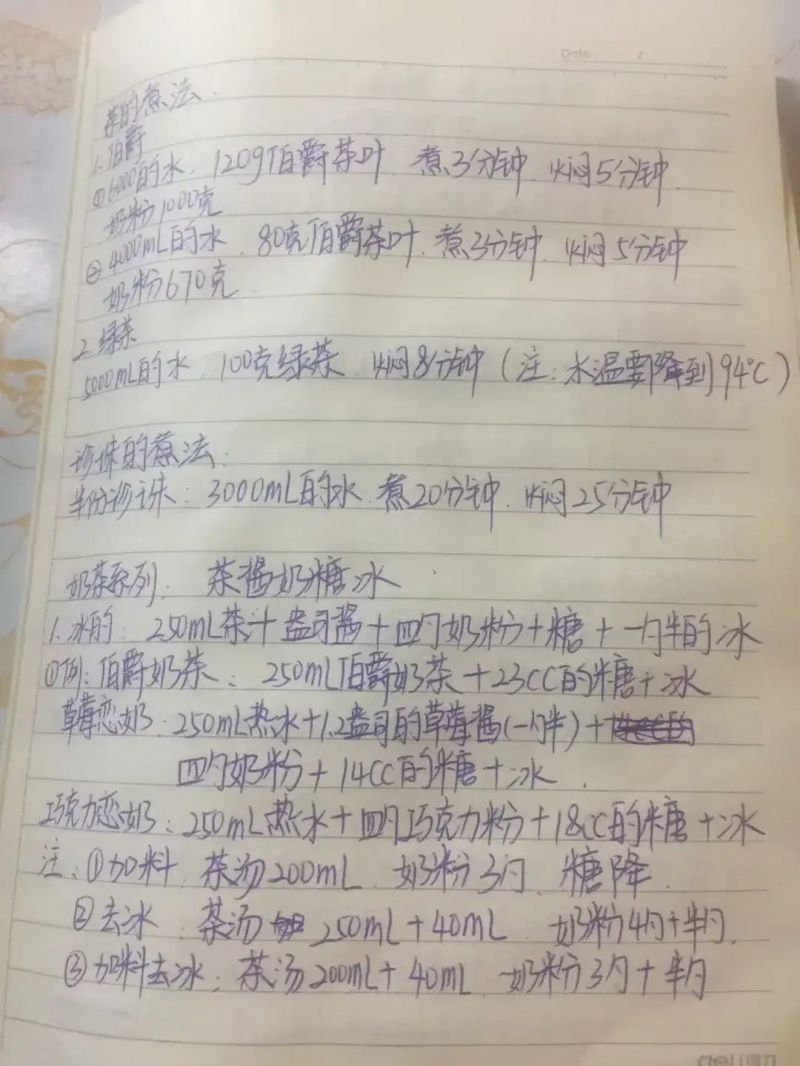 Date / 
茶的煮法
1.伯爵
①6000的水. 120g伯爵茶叶. 煮3分钟. 焖5分钟
奶粉1000克
②4000mL的水. 80克伯爵茶叶. 煮3分钟. 焖5分钟
奶粉670克
2.绿茶
5000mL的水. 100克绿茶. 焖8分钟(注:水温要降到94℃)
珍珠的煮法:
半份珍珠: 3000mL的水. 煮20分钟. 焖25分钟
奶茶系列: 茶酱奶糖冰
1.冰的: 250mL茶+盎司酱+四勺奶粉+糖+一勺半的冰
①例:伯爵奶茶: 250mL伯爵奶茶+23CC的糖+冰
草莓恋奶: 250mL热水+1.2盎司的草莓酱(一勺半)+
四勺奶粉+14CC的糖+冰.
巧克力恋奶: 250mL热水+四勺巧克力粉+18CC的糖+冰
注:①加料. 茶汤200mL. 奶粉3勺. 糖降.
②去冰. 茶汤 250mL+40mL 奶粉4勺+半勺.
③加料去冰: 茶汤200mL+40mL 奶粉3勺+半勺
deli得力